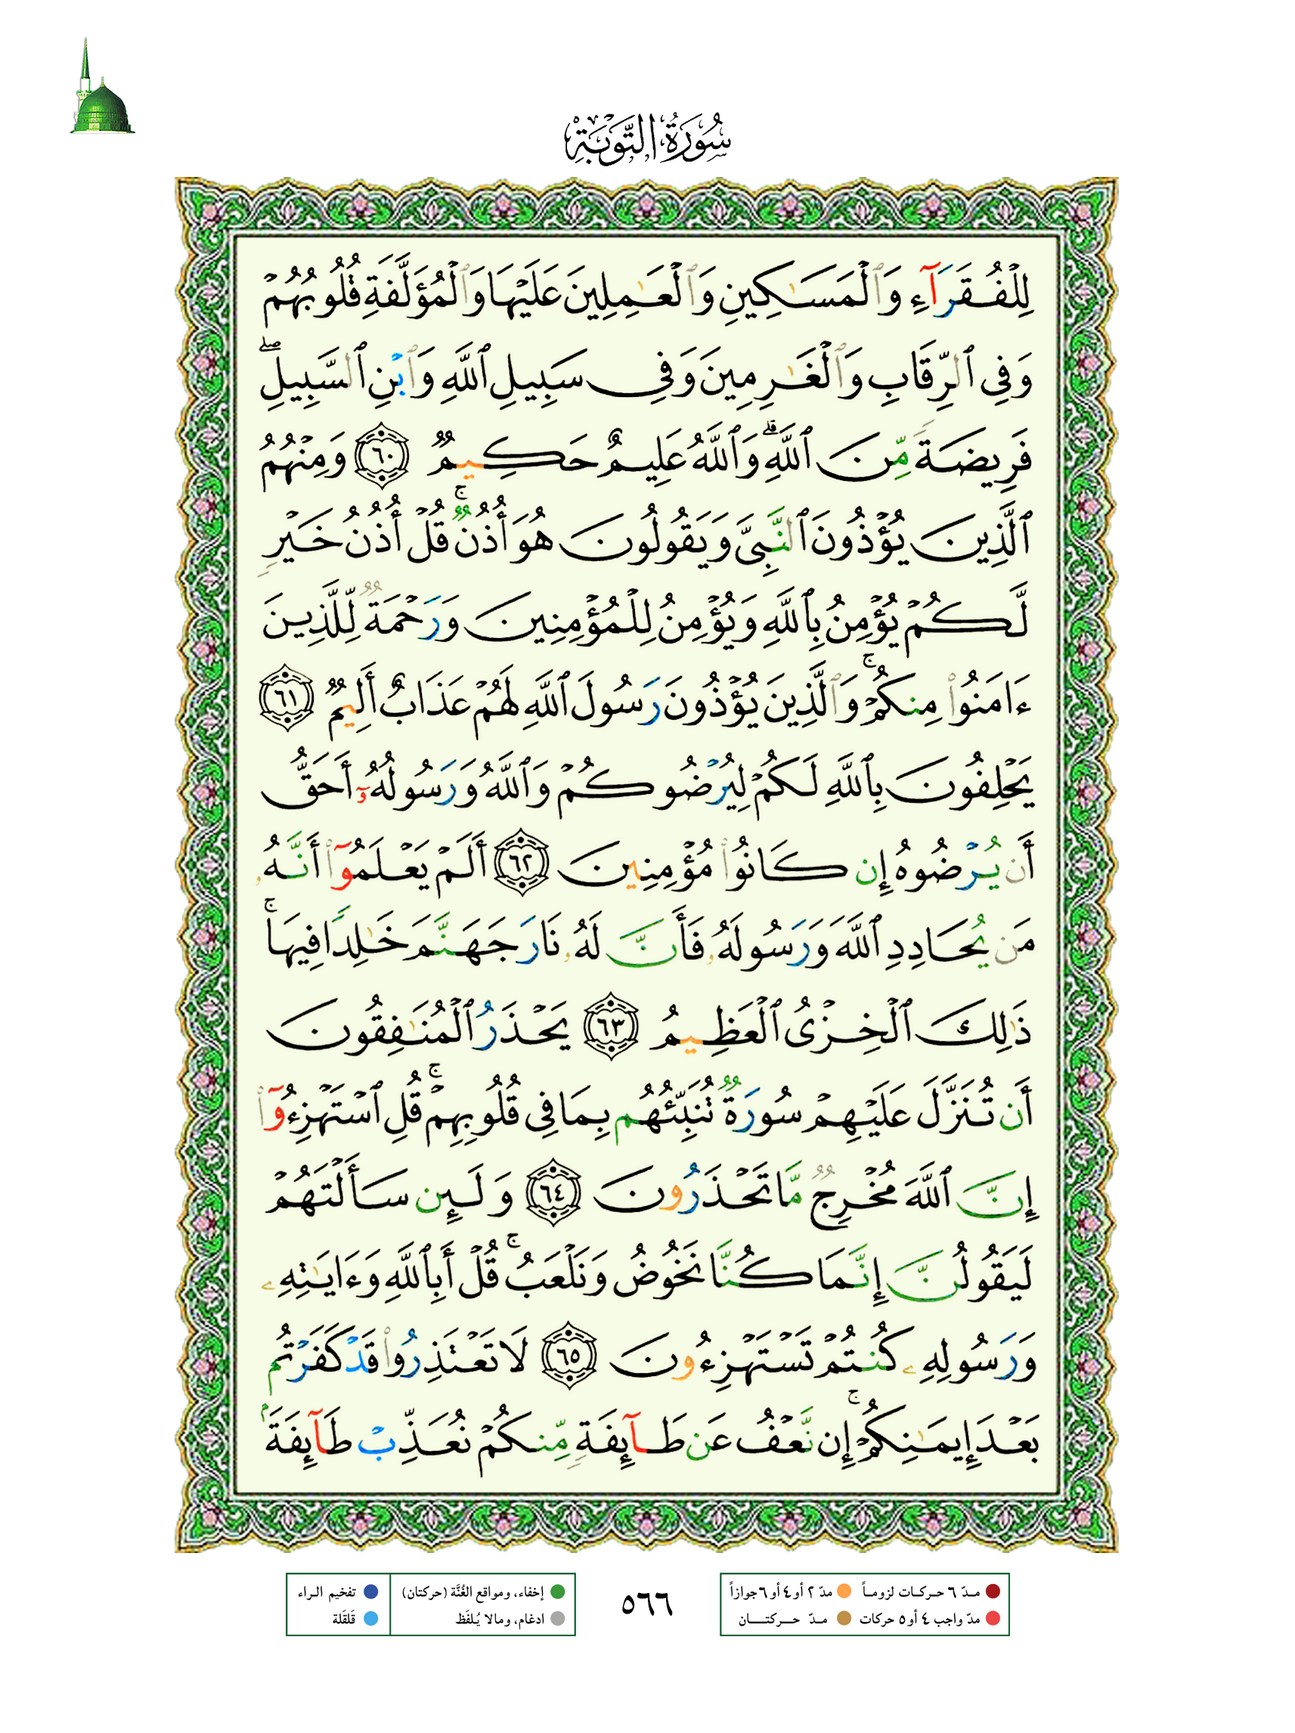 سُورَةُ التَّوْبَةِ
لِلْفُقَرَآءِ وَٱلْمَسَٰكِينِ وَٱلْعَٰمِلِينَ عَلَيْهَا وَٱلْمُؤَلَّفَةِ قُلُوبُهُمْ
وَفِى ٱلرِّقَابِ وَٱلْغَٰرِمِينَ وَفِى سَبِيلِ ٱللَّهِ وَٱبْنِ ٱلسَّبِيلِ ۖ
فَرِيضَةً مِّنَ ٱللَّهِ ۗ وَٱللَّهُ عَلِيمٌ حَكِيمٌ ٦٠ وَمِنْهُمُ
ٱلَّذِينَ يُؤْذُونَ ٱلنَّبِىَّ وَيَقُولُونَ هُوَ أُذُنٌ ۚ قُلْ أُذُنُ خَيْرٍ
لَّكُمْ يُؤْمِنُ بِٱللَّهِ وَيُؤْمِنُ لِلْمُؤْمِنِينَ وَرَحْمَةٌ لِّلَّذِينَ
ءَامَنُوا۟ مِنكُمْ ۚ وَٱلَّذِينَ يُؤْذُونَ رَسُولَ ٱللَّهِ لَهُمْ عَذَابٌ أَلِيمٌ ٦١
يَحْلِفُونَ بِٱللَّهِ لَكُمْ لِيُرْضُوكُمْ وَٱللَّهُ وَرَسُولُهُۥٓ أَحَقُّ
أَن يُرْضُوهُ إِن كَانُوا۟ مُؤْمِنِينَ ٦٢ أَلَمْ يَعْلَمُوٓا۟ أَنَّهُۥ
مَن يُحَادِدِ ٱللَّهَ وَرَسُولَهُۥ فَأَنَّ لَهُۥ نَارَ جَهَنَّمَ خَٰلِدًا فِيهَا ۚ
ذَٰلِكَ ٱلْخِزْىُ ٱلْعَظِيمُ ٦٣ يَحْذَرُ ٱلْمُنَٰفِقُونَ
أَن تُنَزَّلَ عَلَيْهِمْ سُورَةٌ تُنَبِّئُهُم بِمَا فِى قُلُوبِهِمْ ۚ قُلِ ٱسْتَهْزِءُوٓا۟
إِنَّ ٱللَّهَ مُخْرِجٌ مَّا تَحْذَرُونَ ٦٤ وَلَئِن سَأَلْتَهُمْ
لَيَقُولُنَّ إِنَّمَا كُنَّا نَخُوضُ وَنَلْعَبُ ۚ قُلْ أَبِٱللَّهِ وَءَايَٰتِهِۦ
وَرَسُولِهِۦ كُنتُمْ تَسْتَهْزِءُونَ ٦٥ لَا تَعْتَذِرُوا۟ قَدْ كَفَرْتُم
بَعْدَ إِيمَٰنِكُمْ ۚ إِن نَّعْفُ عَن طَآئِفَةٍ مِّنكُمْ نُعَذِّبْ طَآئِفَةًۢ
مدّ ٦ حركات لزوماً مدّ ٢ أو٤ أو٦ جوازاً
مدّ واجب ٤ أو٥ حركات مدّ حركتان
٥٦٦
إخفاء، ومواقع الغُنَّة (حركتان) تفخيم الراء
ادغام، ومالا يُلفَظ قَلقَلة